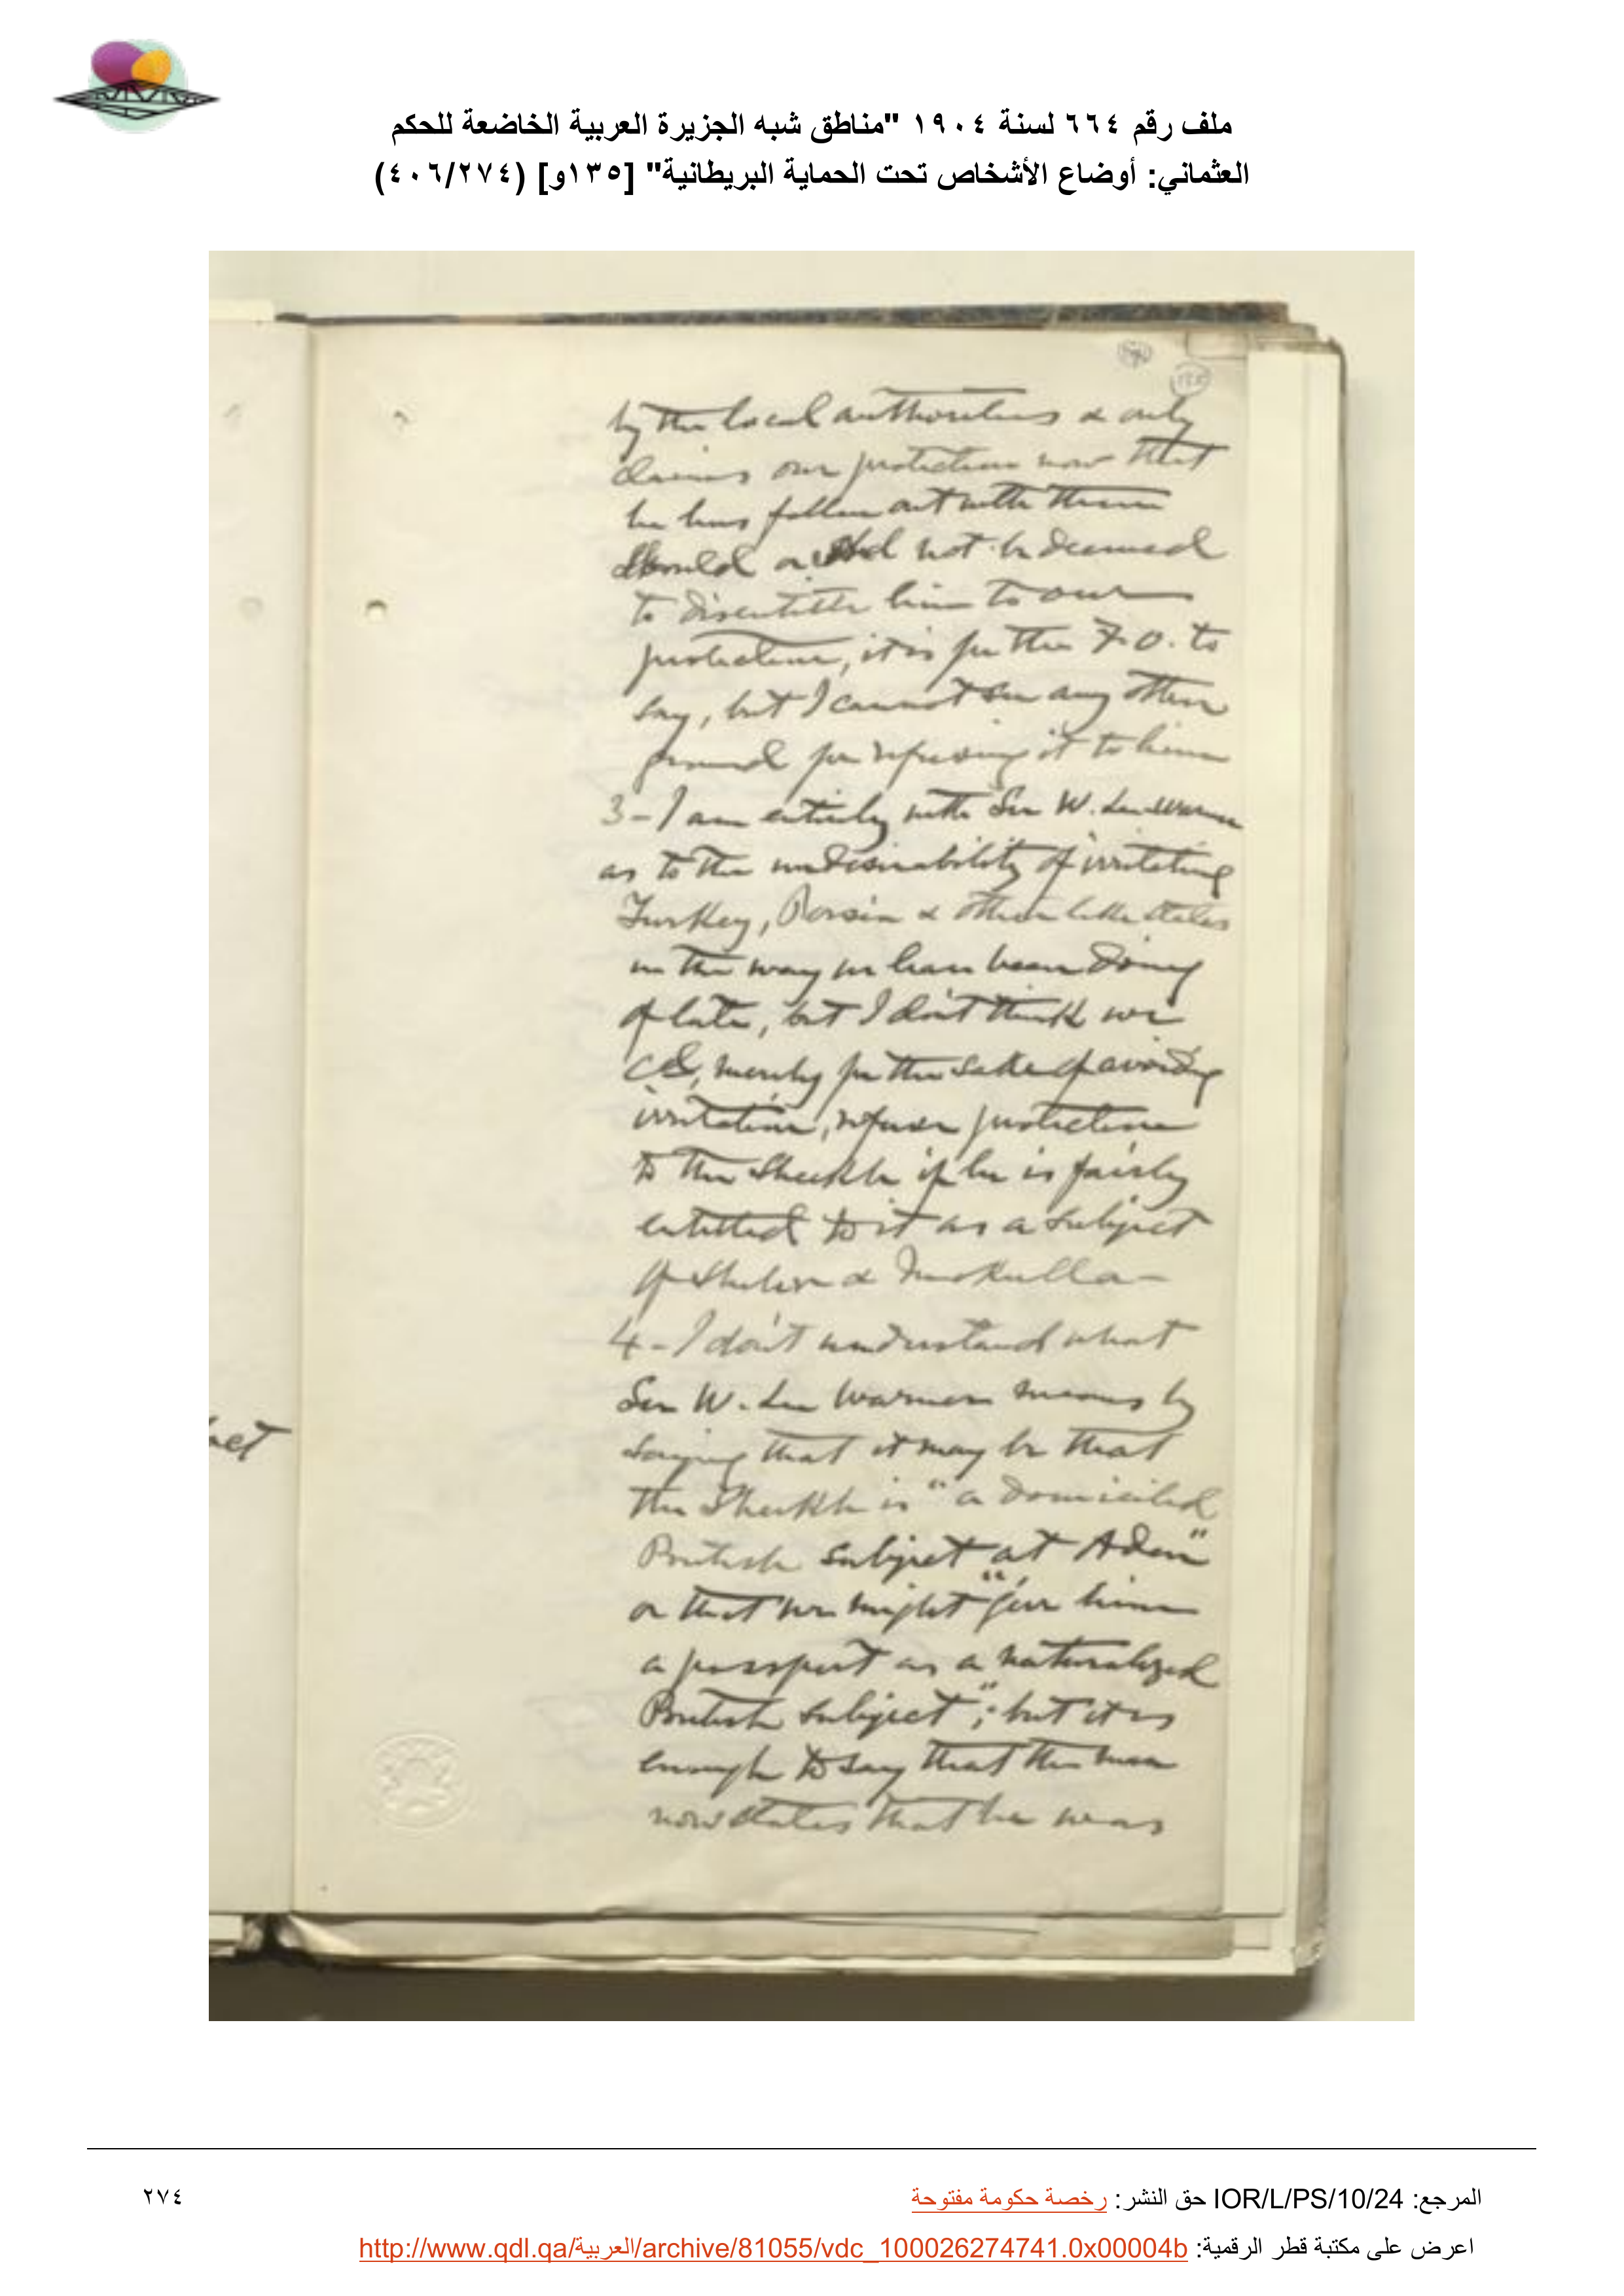 ملف رقم ٦٦٤ لسنة ١٩٠٤ "مناطق شبه الجزيرة العربية الخاضعة للحكم
العثماني: أوضاع الأشخاص تحت الحماية البريطانية" [١٣٥و] (٤٠٦/٢٧٤)
135
by the local authorities & only
claims our protection now that
he has fallen out with them
should or shd not be deemed
to disentitle him to our
protection, it is for the F.O. to
say, but I cannot see any other
ground for refusing it to him
3 - I am entirely with Sir W. Lee-Warner
as to the undesirability of irritating
Turkey, Persia & other like states
in the way we have been doing
of late, but I don't think we
cd, merely for the sake of avoiding
irritation, refuse protection
to the Sheikh if he is fairly
entitled to it as a subject
of Shehr & Mokulla -
4 - I don't understand what
Sir W. Lee Warner means by
saying that it may be that
the Sheikh is "a domiciled
British subject at Aden"
or that we might "give him
a passport as a naturalized
British subject"; but it is
enough to say that the man
now states that he was
المرجع: IOR/L/PS/10/24 حق النشر: رخصة حكومة مفتوحة
٢٧٤
اعرض على مكتبة قطر الرقمية: http://www.qdl.qa/العربية/archive/81055/vdc_100026274741.0x00004b